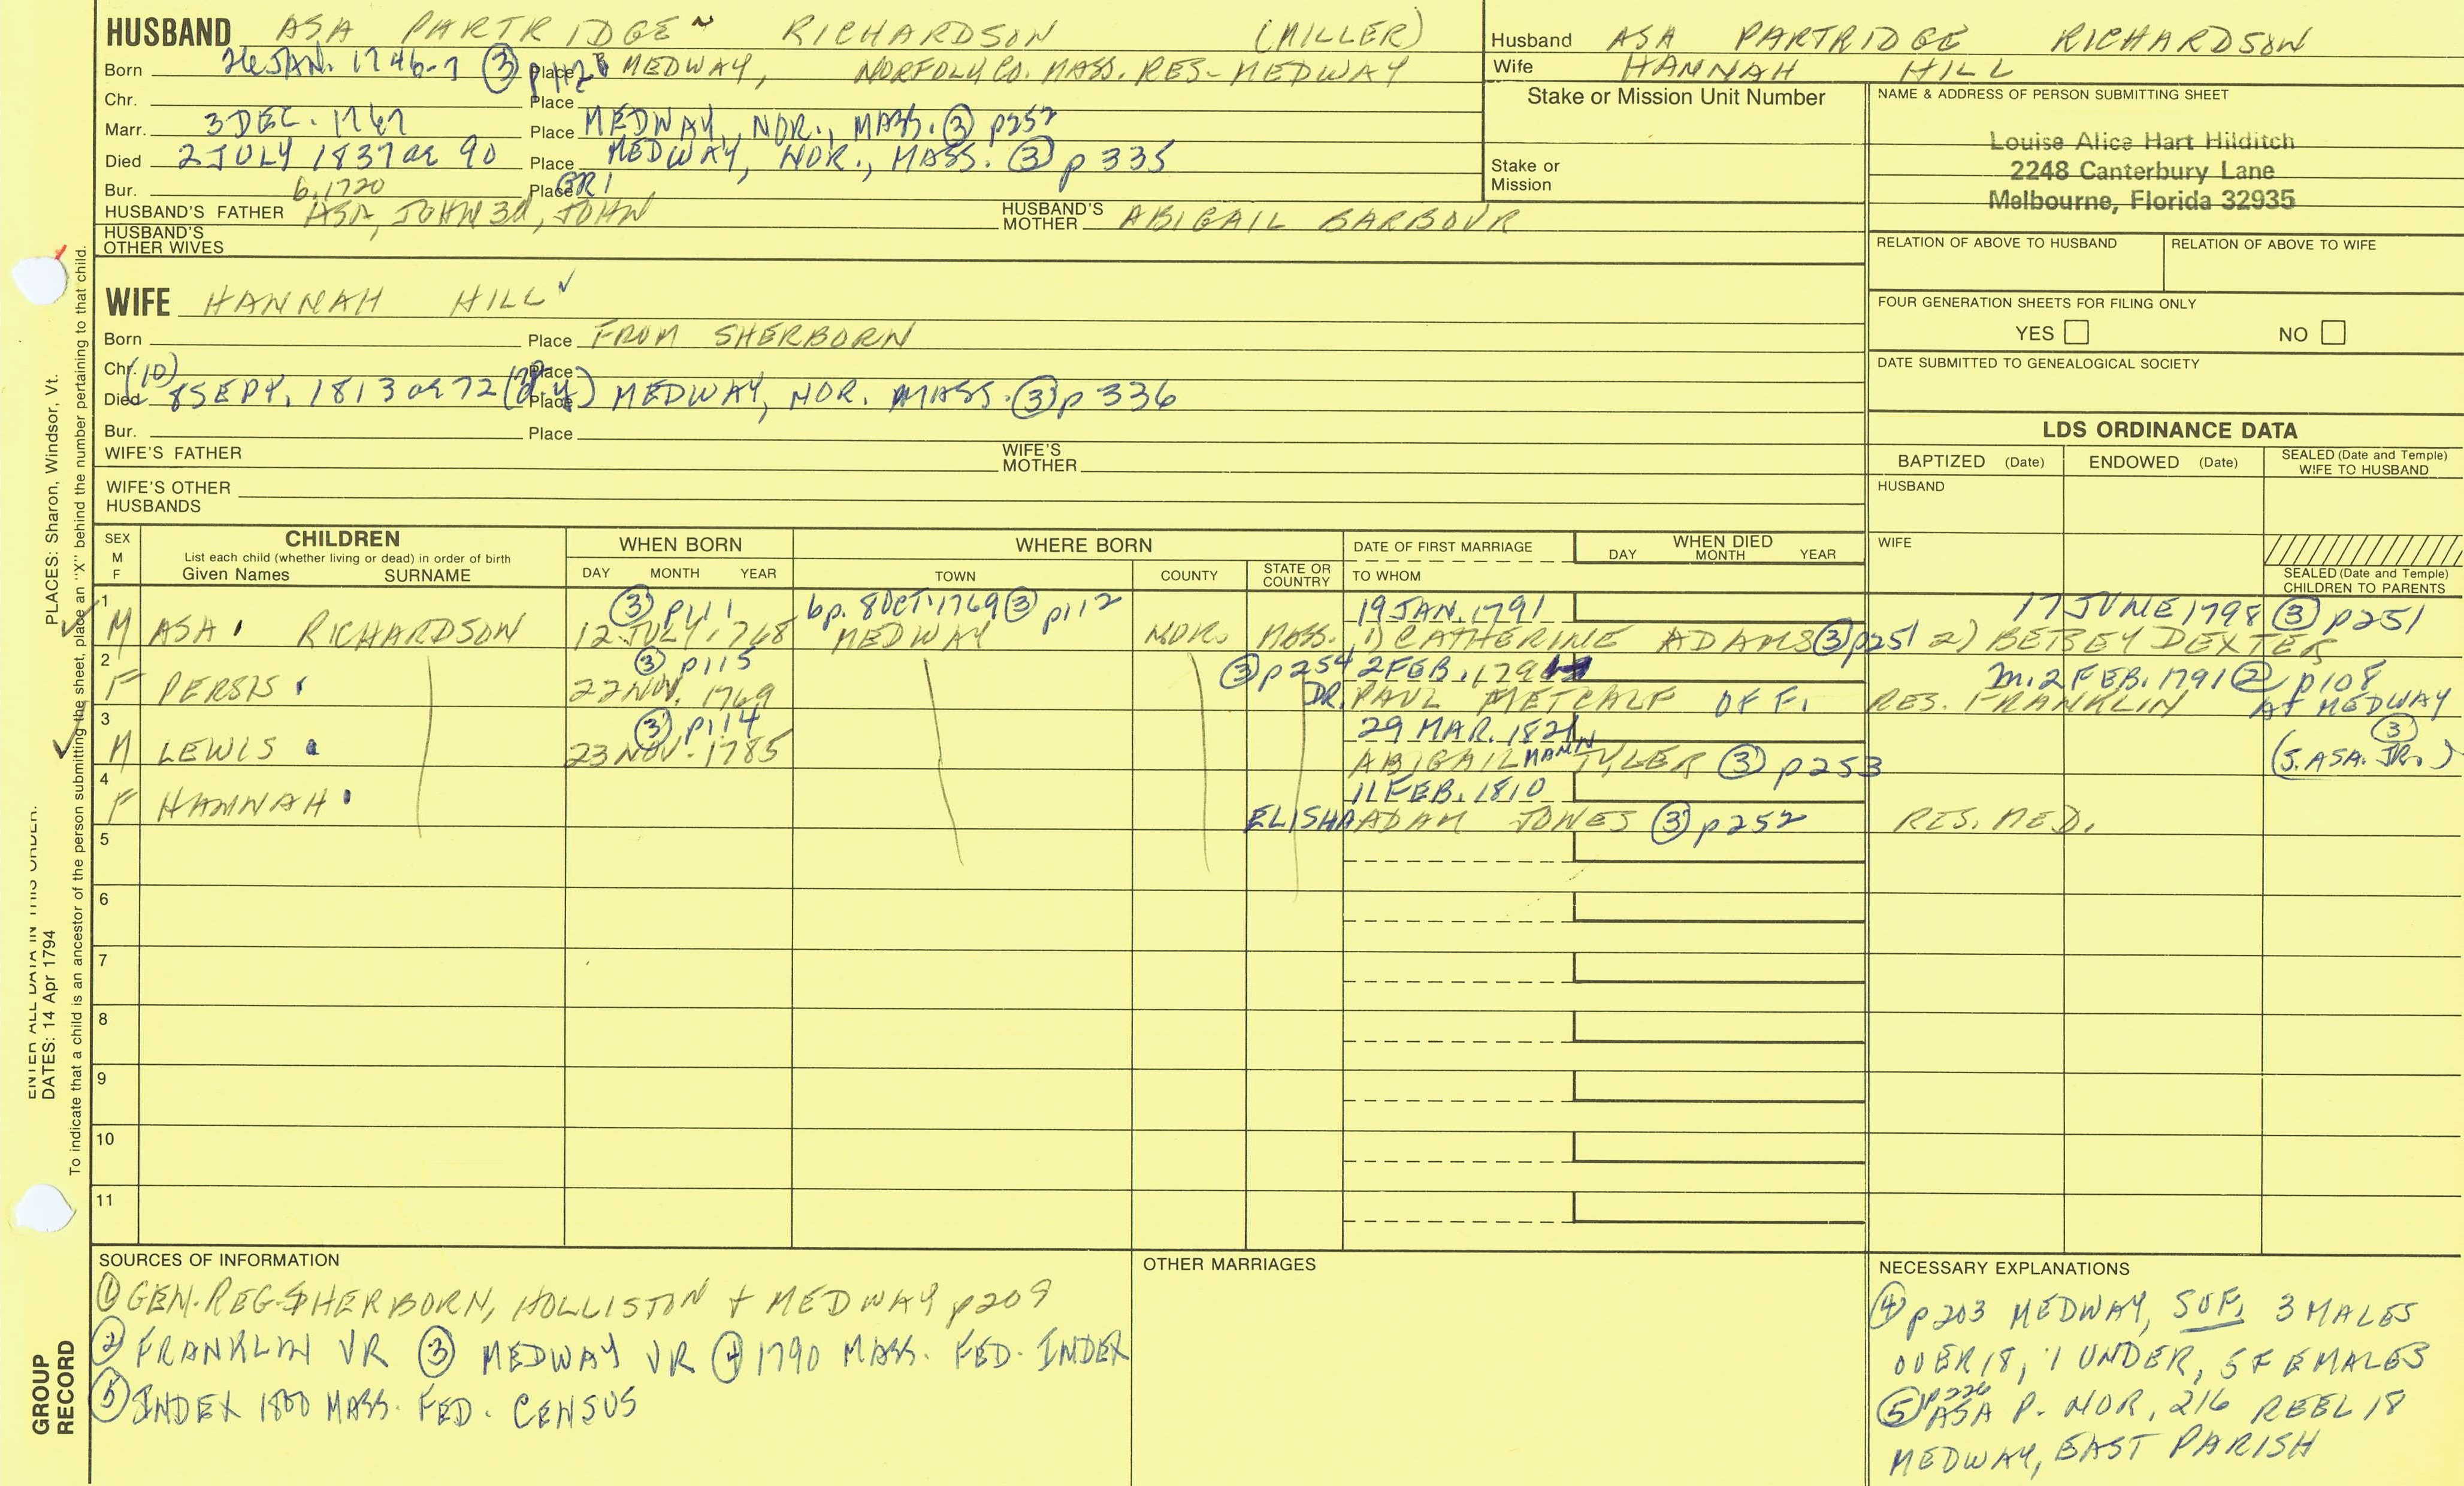 HUSBAND ASA PARTRIDGE RICHARDSON (MILLER)
Born 26 JAN. 1746-7 ③ p112 Place MEDWAY, NORFOLK CO. MASS. RES- MEDWAY
Chr. Place
Marr. 3 DEC. 1767 Place MEDWAY, NOR., MASS. ③ p252
Died 2 JULY 1837 ae 90 Place MEDWAY, NOR., MASS. ③ p 335
Bur. b. 1720 Place GR1
HUSBAND'S FATHER ASA, JOHN 3d, JOHN HUSBAND'S MOTHER ABIGAIL BARBOUR
HUSBAND'S OTHER WIVES
Husband ASA PARTRIDGE RICHARDSON
Wife HANNAH HILL
Stake or Mission Unit Number
Stake or Mission
NAME & ADDRESS OF PERSON SUBMITTING SHEET
Louise Alice Hart Hilditch
2248 Canterbury Lane
Melbourne, Florida 32935
RELATION OF ABOVE TO HUSBAND RELATION OF ABOVE TO WIFE
FOUR GENERATION SHEETS FOR FILING ONLY
YES NO
DATE SUBMITTED TO GENEALOGICAL SOCIETY
WIFE HANNAH HILL
Born Place FROM SHERBORN
Chr. (10) Place
Died 8 SEPT. 1813 ae 72 Place MEDWAY, NOR. MASS. ③ p 336
Bur. Place
WIFE'S FATHER WIFE'S MOTHER
WIFE'S OTHER HUSBANDS
LDS ORDINANCE DATA
BAPTIZED (Date) ENDOWED (Date) SEALED (Date and Temple) WIFE TO HUSBAND
HUSBAND
WIFE
SEALED (Date and Temple) CHILDREN TO PARENTS
SEX M F
CHILDREN
List each child (whether living or dead) in order of birth
Given Names SURNAME
WHEN BORN
DAY MONTH YEAR
WHERE BORN
TOWN COUNTY STATE OR COUNTRY
DATE OF FIRST MARRIAGE
TO WHOM
WHEN DIED
DAY MONTH YEAR
1 ③ p111 bp. 8 OCT. 1769 ③ p112 19 JAN. 1791 17 JUNE 1798 ③ p251
M ASA RICHARDSON 12 JULY 1768 MEDWAY NOR. MASS. 1) CATHERINE ADAMS ③ p251 2) BETSEY DEXTER
2 ③ p115 ③ p254 2 FEB. 179 m. 2 FEB. 1791 ② p108
F PERSIS 22 NOV. 1769 DR. PAUL METCALF OF F. RES. FRANKLIN AT MEDWAY
3 ③ p114 29 MAR. 1821 ③
M LEWIS 23 NOV. 1785 ABIGAIL MANN TYLER ③ p253 (S. ASA. JR.)
4 11 FEB. 1810
F HANNAH ELISHA ADAM JONES ③ p252 RES. MED.
5
6
7
8
9
10
11
SOURCES OF INFORMATION
① GEN. REG. SHERBORN, HOLLISTON + MEDWAY p209
② FRANKLIN VR ③ MEDWAY VR ④ 1790 MASS. FED. INDEX
⑤ INDEX 1800 MASS. FED. CENSUS
OTHER MARRIAGES
NECESSARY EXPLANATIONS
④ p203 MEDWAY, SUF, 3 MALES
OVER 18, 1 UNDER, 5 FEMALES
p226
⑤ ASA P. NOR, 216 REEL 18
MEDWAY, EAST PARISH
DATES: 14 Apr 1794 PLACES: Sharon, Windsor, Vt.
To indicate that a child is an ancestor of the person submitting the sheet, place an "X" behind the number pertaining to that child.
GROUP
RECORD